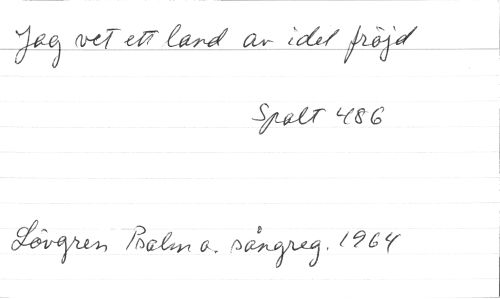 Jag vet ett land av idel fröjd
Spalt 486
Lövgren Psalm o. sångreg. 1964